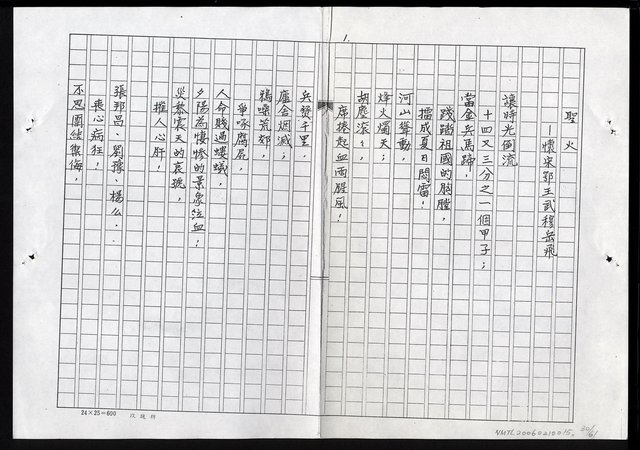 1.
聖火
—懷宋鄂王武穆岳飛
讓時光倒流
十四又三分之一個甲子；
當金兵馬蹄，
踐踏祖國的胸膛，
擂成夏日悶雷！
河山聳動，
烽火燭天；
胡塵滾滾，
席捲起血雨腥風！
兵燹千里，
廬舍烟滅；
鴉噪荒郊，
爭啄腐屍，
人命賤過螻蟻，
夕陽為悽慘的景象泣血；
災黎震天的哀號，
摧人心肝！
張邦昌、劉豫、楊么..
喪心病狂，
不思團結禦侮，
24×25=600
NMTL20060210015
30/61